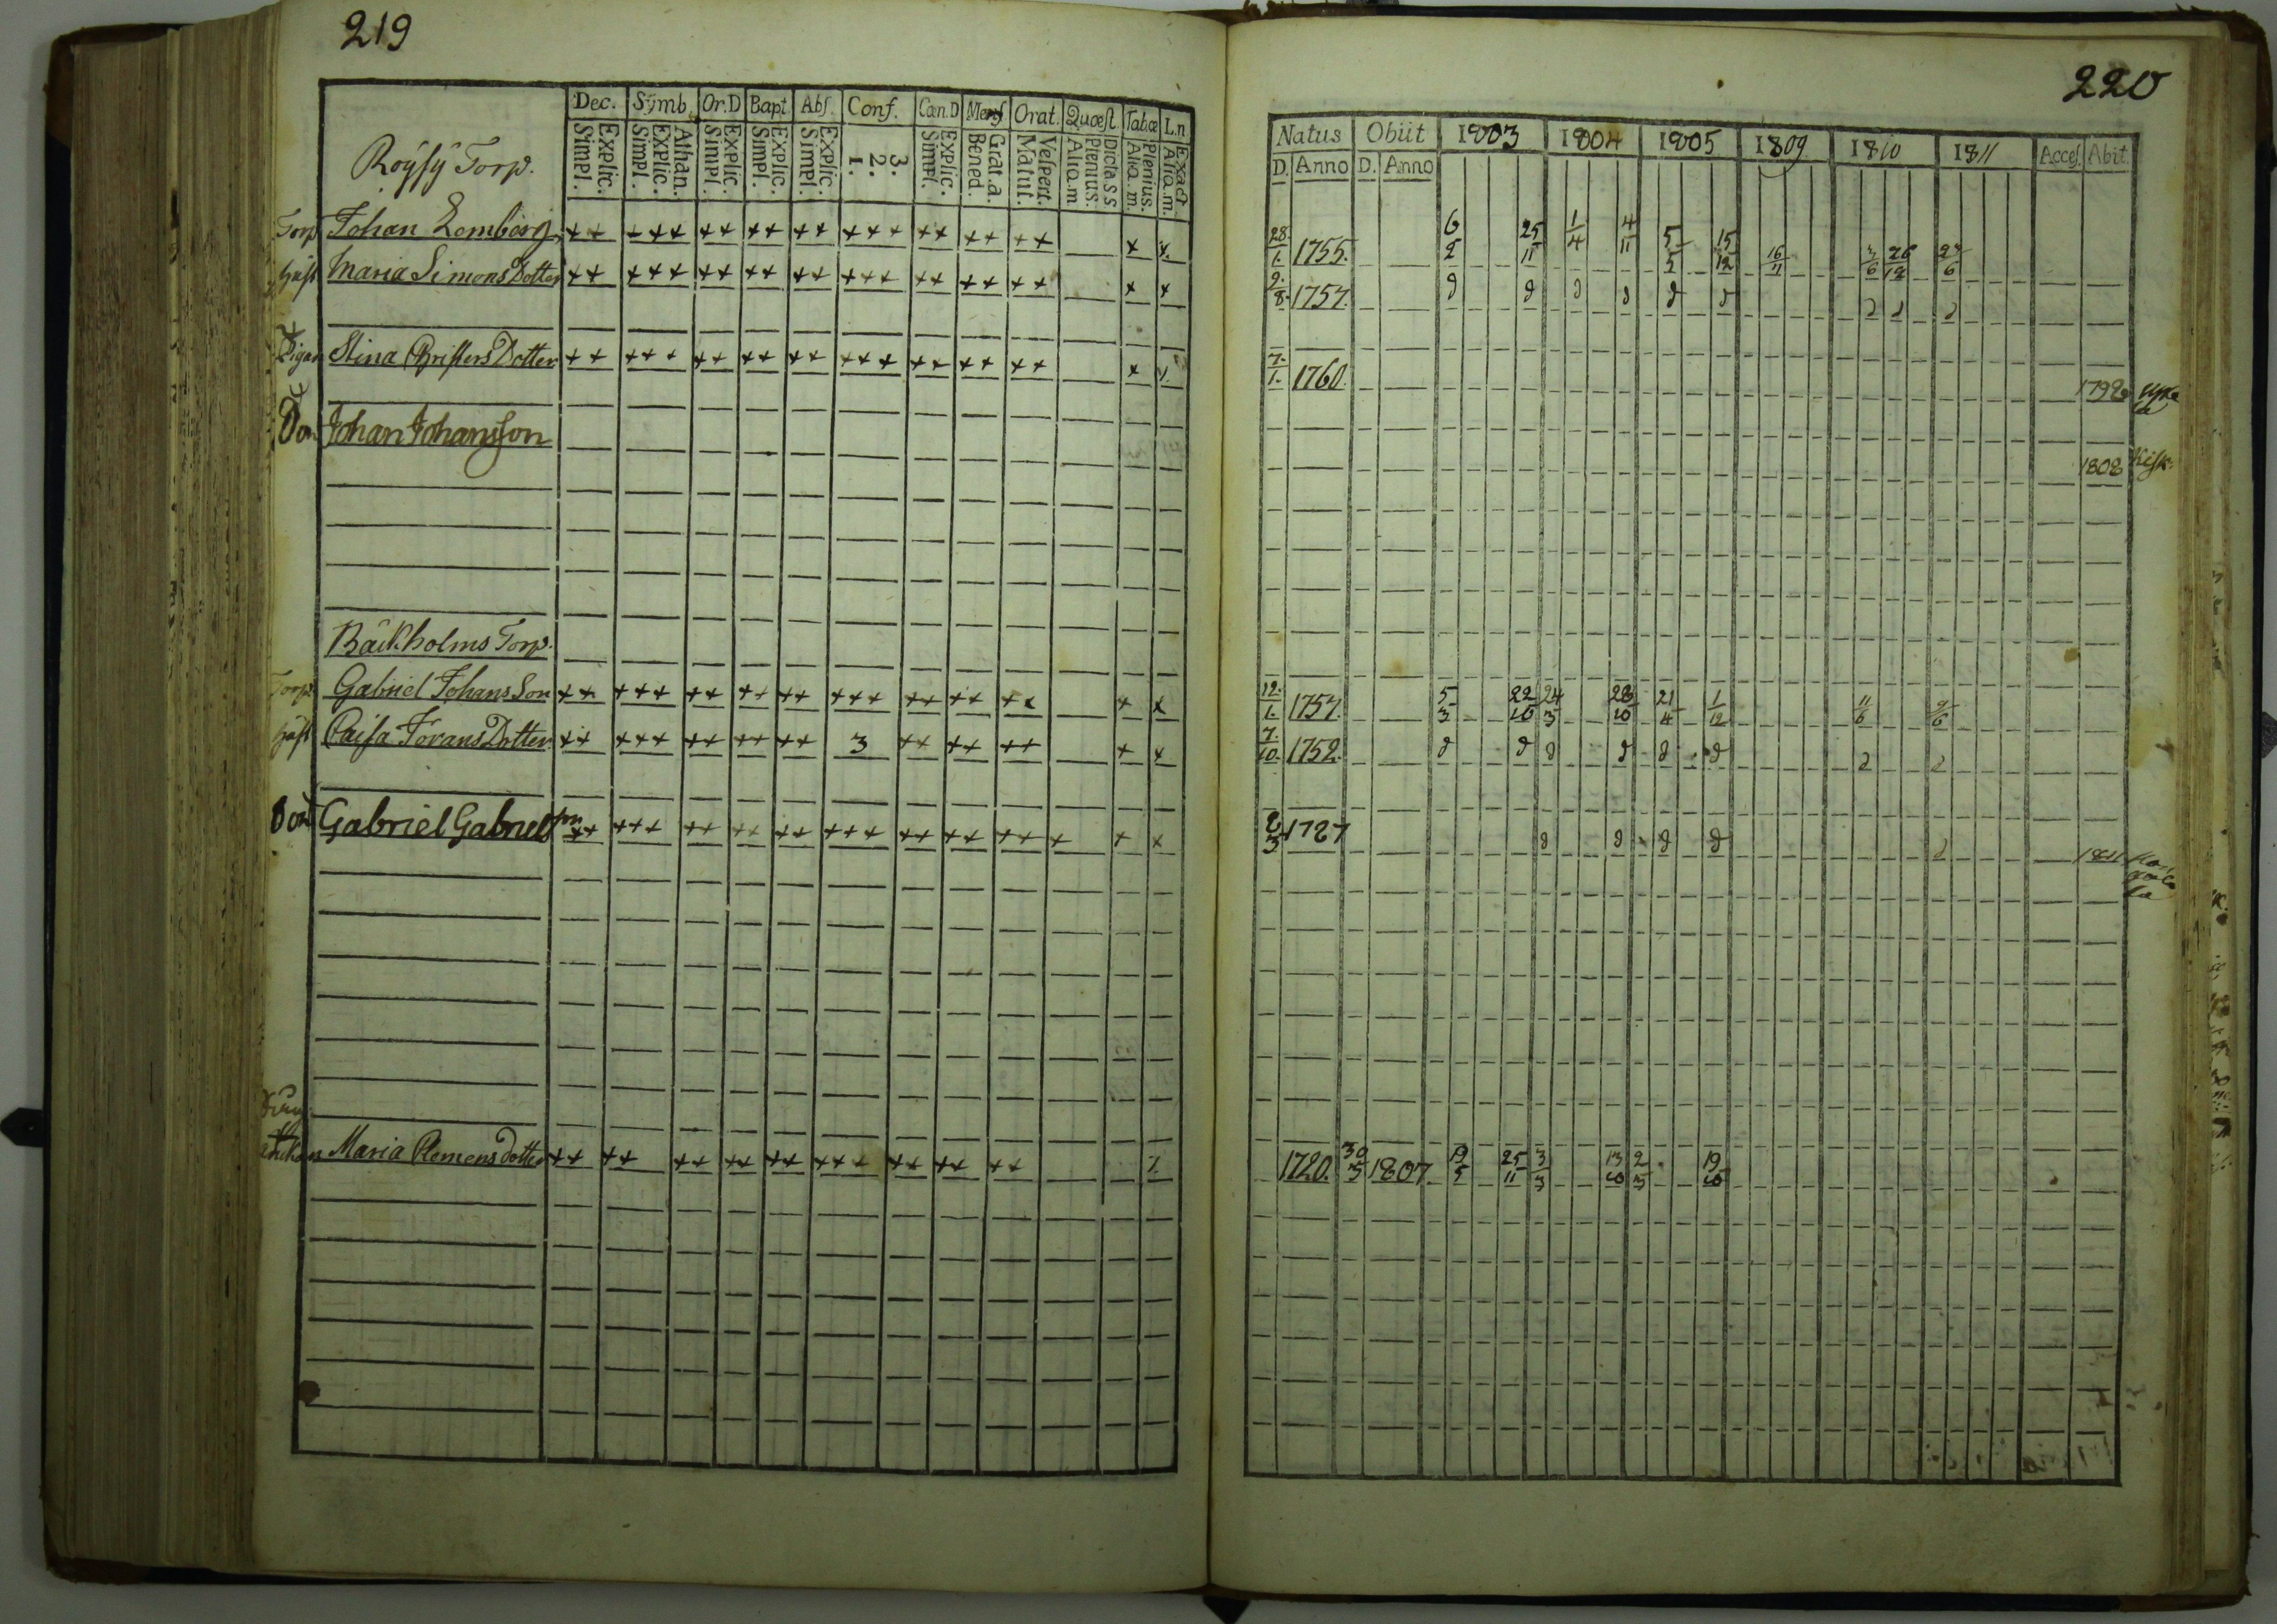 219
Dec. Sÿmb. Or.D Bapt Abſ. Conf. Cœn.D Menſ Orat. Quœſt. Tabœ L.n
Röÿſÿ Torp. Explic. Simpl. Athan. Explic. Simpl. Explic. Simpl. Explic. Simpl. Explic. Simpl. 3. 2. 1. Explic. Simpl. Grat.a. Bened. Veſpert. Matut. Dicta S S Plenius. Aliq.m. Plenius. Aliq.m. Exact Aliq.m.
Torp Johan Lemberg ++ +++ ++ ++ ++ +++ ++ ++ ++ + +
Huſt Maria Simons Dotter ++ +++ ++ ++ ++ +++ ++ ++ ++ + +
Pigan Stina Christers Dotter ++ +++ ++ ++ ++ +++ ++ ++ ++ + +
Son Johan Johansson
Bäckholms Torp.
Torp Gabriel Johans Son ++ +++ ++ ++ ++ +++ ++ ++ ++ + +
Huſt Caisa Jörans Dotter ++ +++ ++ ++ ++ 3 ++ ++ ++ + +
Son Gabriel Gabrielsson ++ +++ ++ ++ ++ +++ ++ ++ ++ + + +
Enkan Maria Clemens dotter ++ ++ ++ ++ ++ +++ ++ ++ ++
220
Natus Obiit 1803 1804 1805 1809 1810 1811 Acceſ. Abit.
D. Anno D. Anno
28/1. 1755. 6/2 25/11 1/4 4/11 5/5 15/12 16/11 3/6 26/12 23/6
9./8. 1757. d d d d d d d d d
7./1. 1760. 1792
1808
12./1. 1757. 5/3 22/10 24/3 28/10 21/4 1/12 11/6 9/6
7./10. 1752. d d d d d d d d
2/3 1787 d d d d d 1811
1720. 30/3 1807. 19/5 25/11 3/3 13/10 2/3 19/10